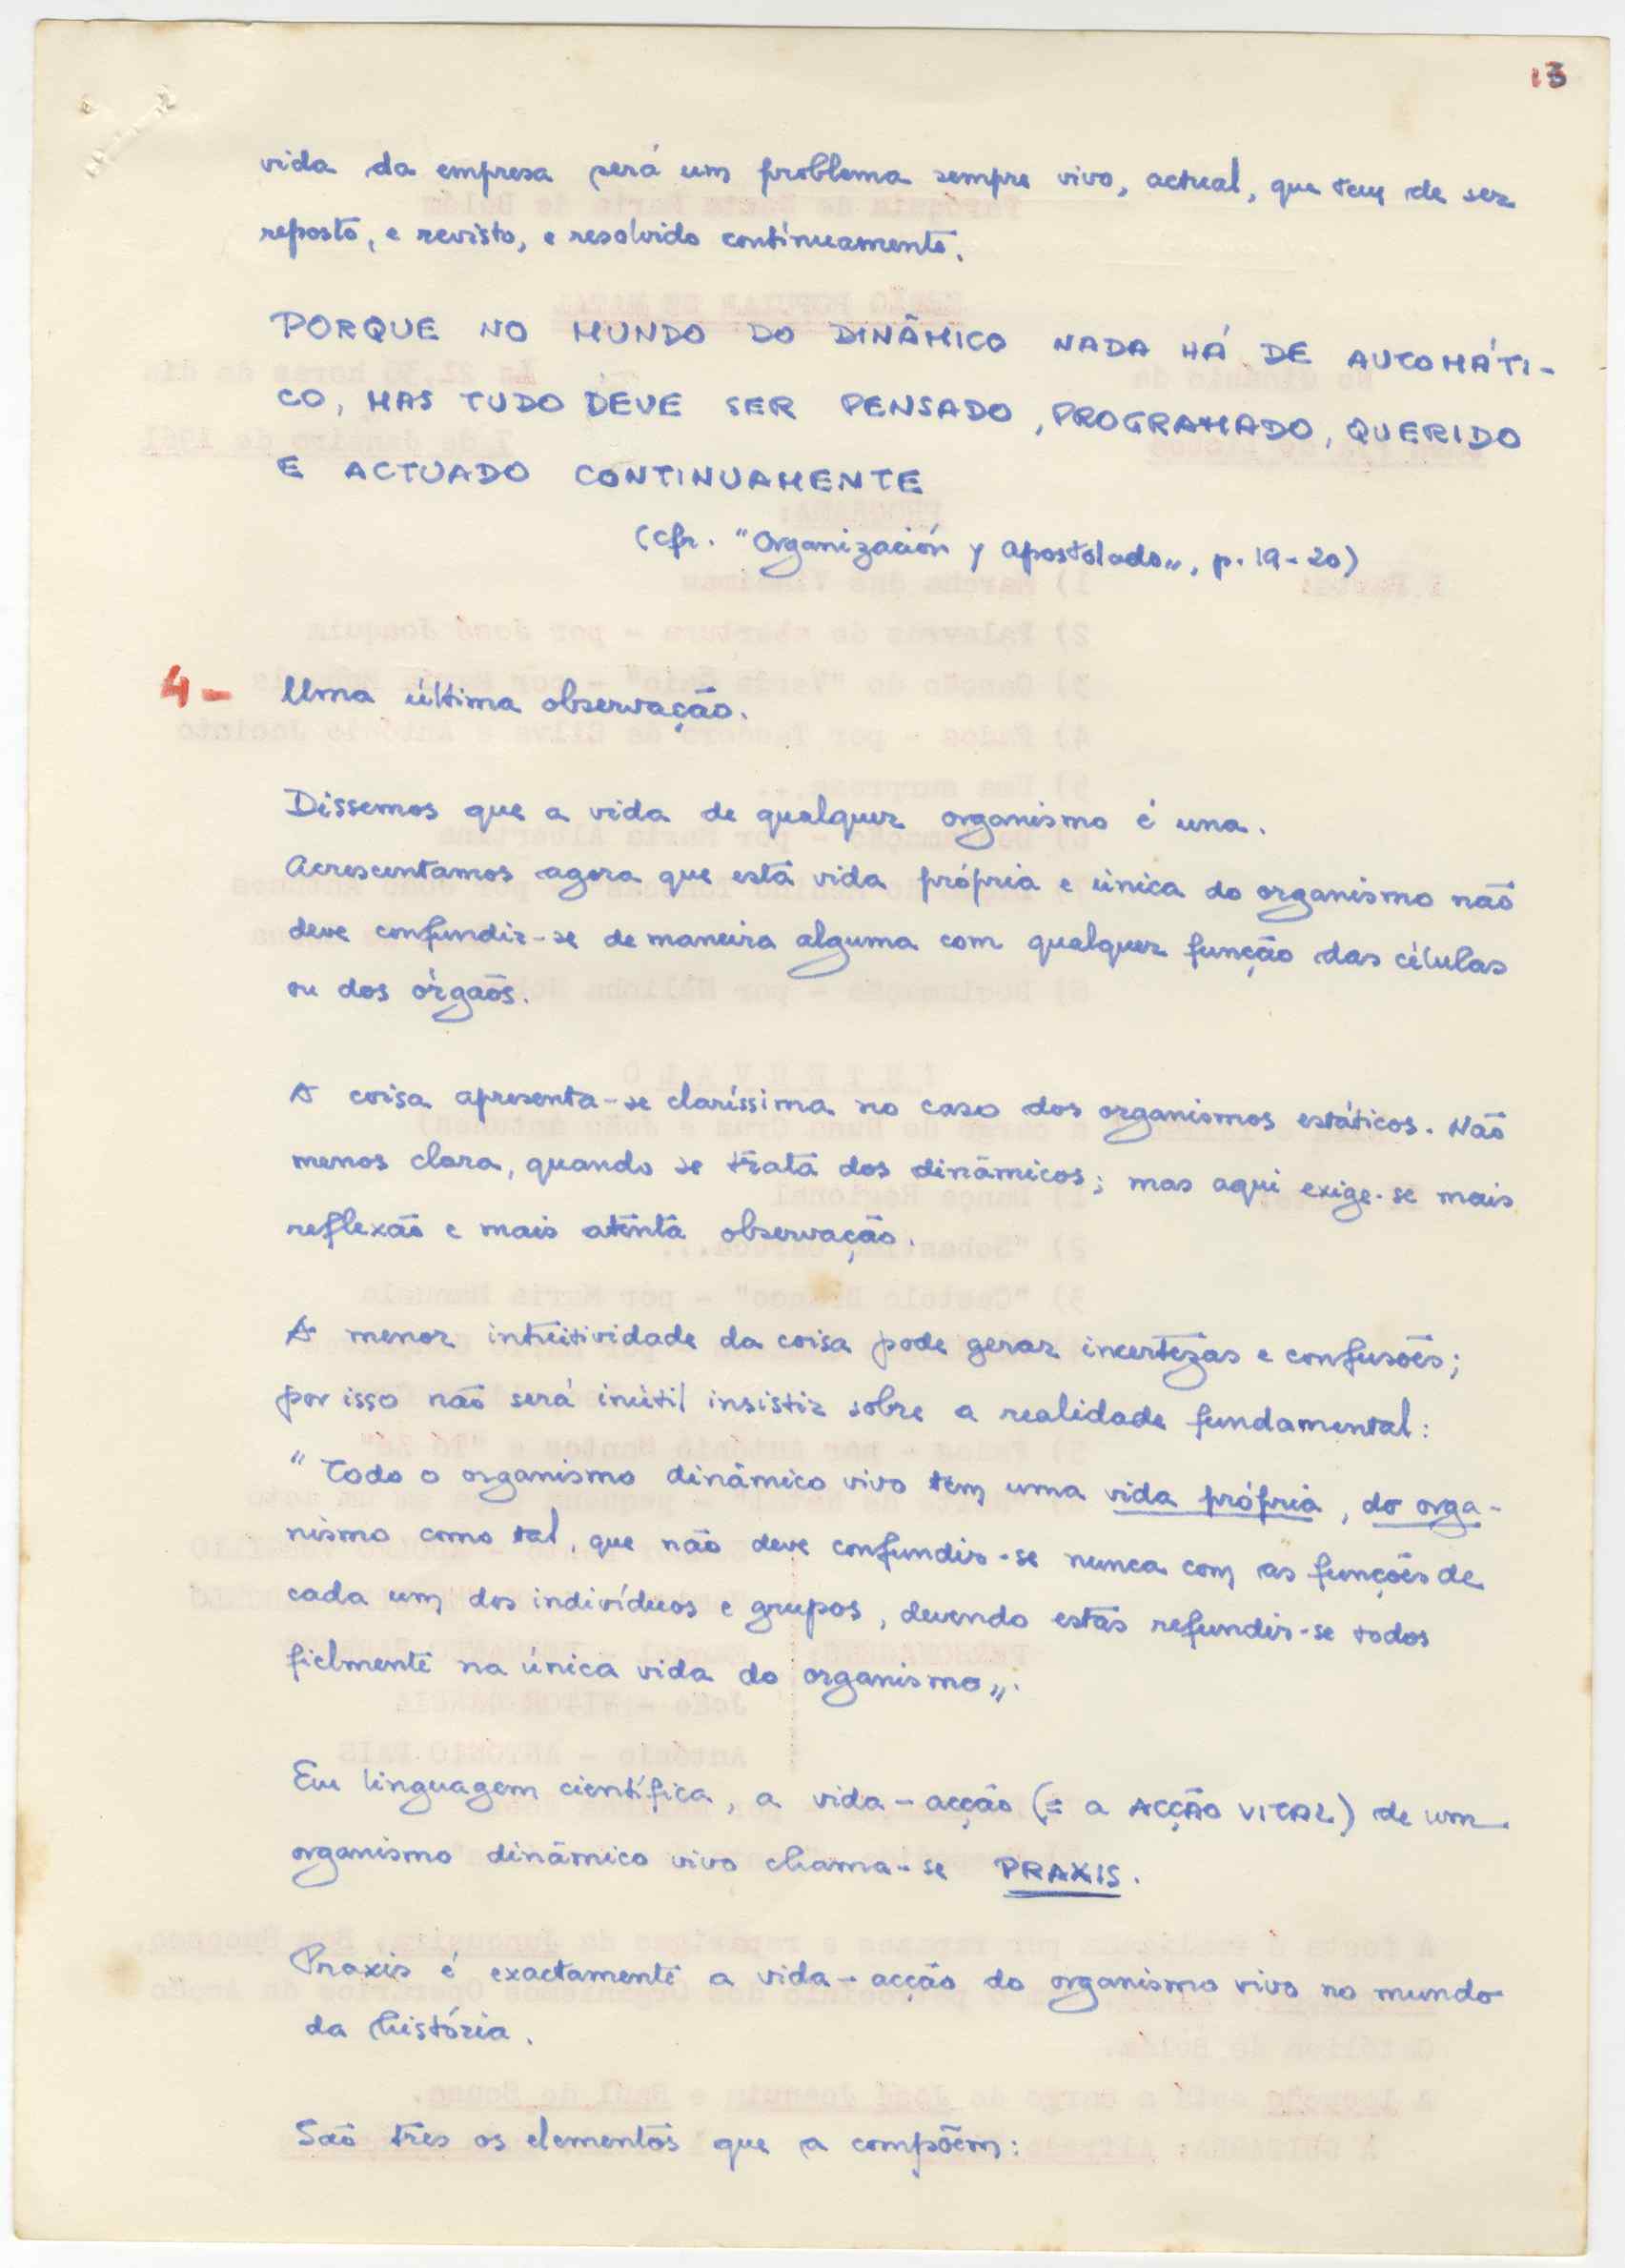 13
vida da empresa será um problema sempre vivo, actual, que tem de ser
reposto, e revisto, e resolvido contínuamente.
PORQUE NO MUNDO DO DINÂMICO NADA HÁ DE AUTOMÁTI-
CO, MAS TUDO DEVE SER PENSADO, PROGRAMADO, QUERIDO
E ACTUADO CONTINUAMENTE
(cfr. "Organización y apostolado", p. 19-20)
4- Uma última observação.
Dissemos que a vida de qualquer organismo é una.
Acrescentamos agora que esta vida própria e única do organismo não
deve confundir-se de maneira alguma com qualquer função das células
ou dos órgãos.
A coisa apresenta-se claríssima no caso dos organismos estáticos. Não
menos clara, quando se trata dos dinâmicos; mas aqui exige-se mais
reflexão e mais atenta observação.
A menor intuitividade da coisa pode gerar incertezas e confusões;
por isso não será inútil insistir sobre a realidade fundamental:
"Todo o organismo dinâmico vivo tem uma vida própria, do orga-
nismo como tal, que não deve confundir-se nunca com as funções de
cada um dos indivíduos e grupos, devendo estas refundir-se todos
fielmente na única vida do organismo".
Em linguagem científica, a vida-acção (= a ACÇÃO VITAL) de um
organismo dinâmico vivo chama-se PRAXIS.
Praxis é exactamente a vida-acção do organismo vivo no mundo
da história.
São três os elementos que a compõem: